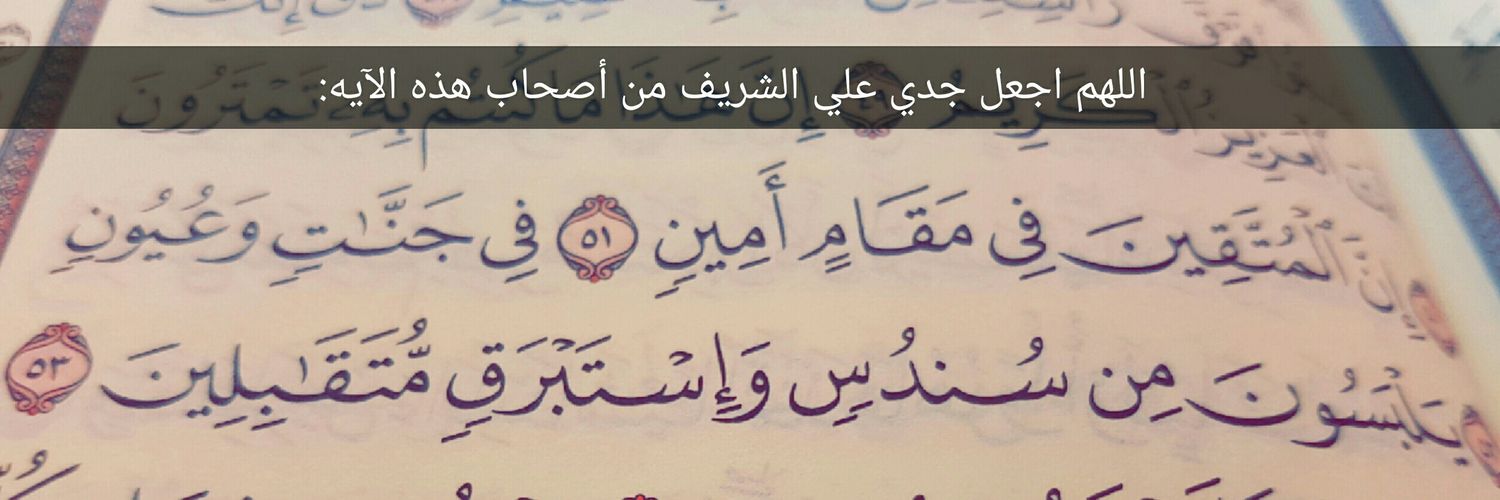 اللهم اجعل جدي علي الشريف من أصحاب هذه الآيه:
ٱلْعَزِيزُ ٱلْكَرِيمُ ٤٩ إِنَّ هَٰذَا مَا كُنتُم بِهِۦ تَمْتَرُونَ
إِنَّ ٱلْمُتَّقِينَ فِى مَقَامٍ أَمِينٍ ٥١ فِى جَنَّٰتٍ وَعُيُونٍ
يَلْبَسُونَ مِن سُندُسٍ وَإِسْتَبْرَقٍ مُّتَقَٰبِلِينَ ٥٣